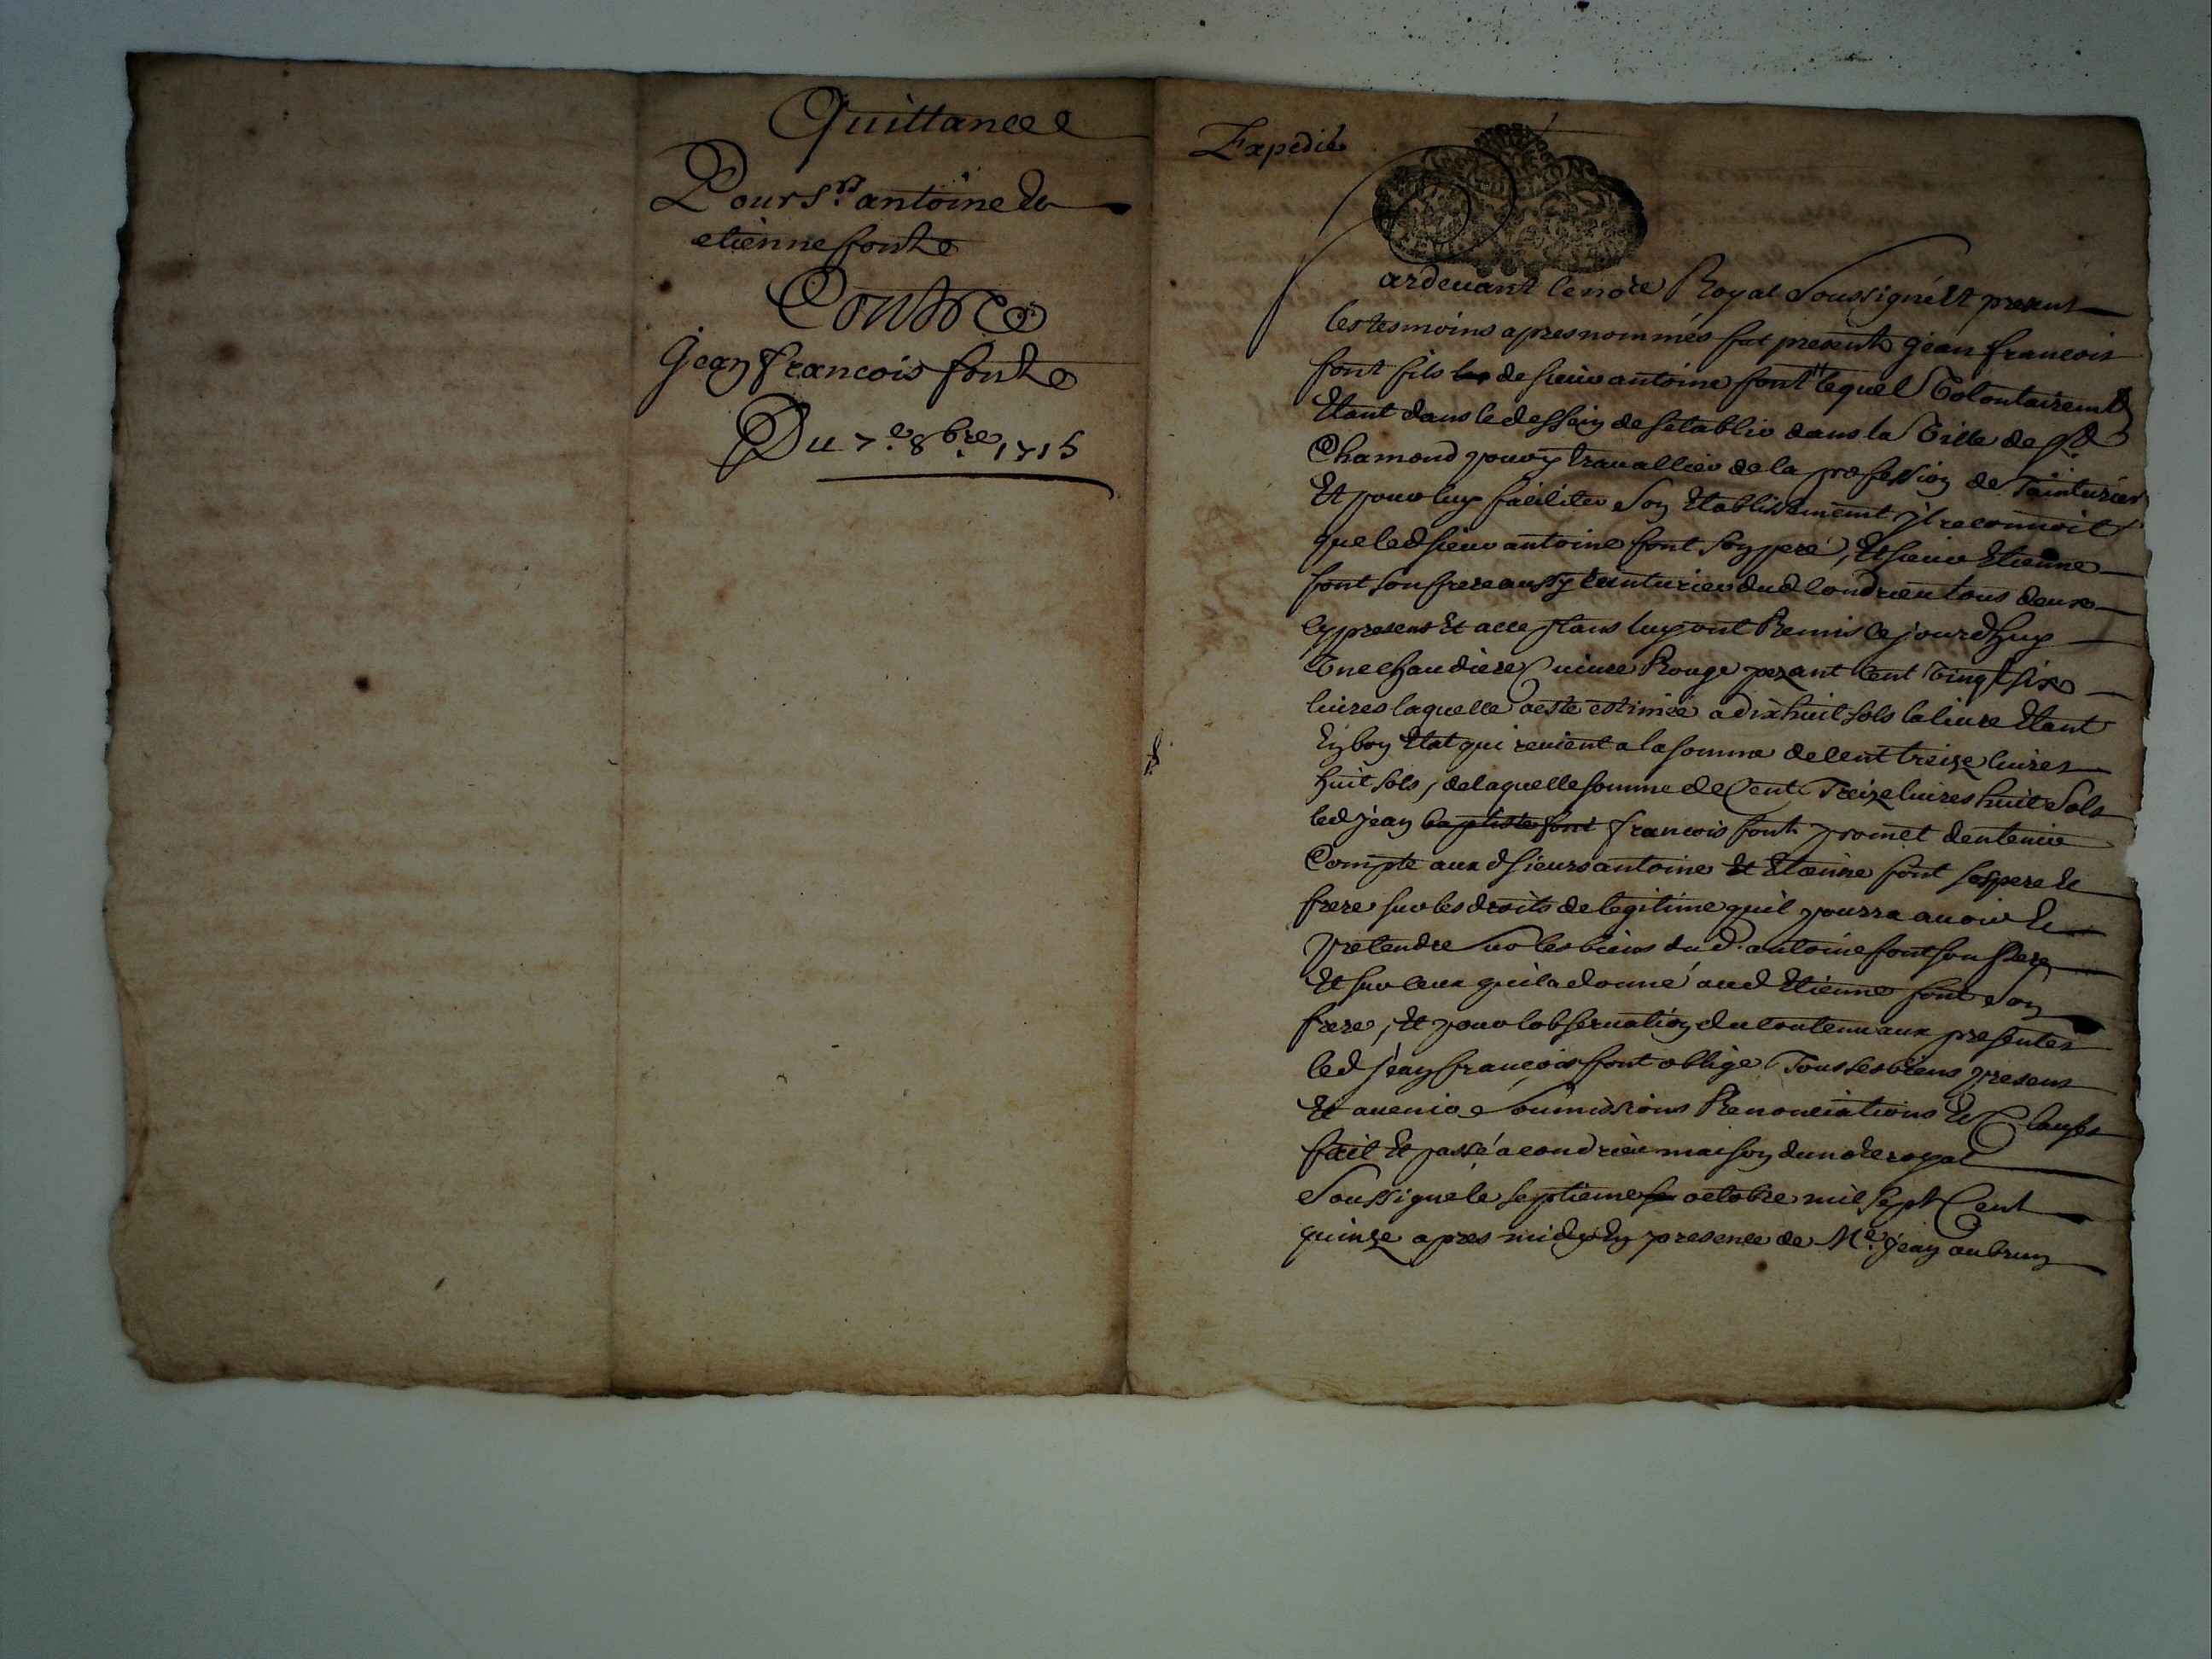 Quittance
Pour Srs antoine &
etienne font
Contre
Jean francois font
Du 7e 8bre 1715
Expedié
Pardevant le notre Royal Soussigné Et present
les tesmoins apres nommés fut present jean francois
font fils de sieur antoine font lequel Volontairemt
Etant dans le dessein de setablir dans la Ville de St
Chamond pour y travallier de la profession de Tainturier
Et pour luy faciliter son Etablissement jl reconnoit
que led sieur antoine font son pere, Et sieur Etienne
font son frere aussy tainturier dud Condrieu tous deux
cy presens Et acceptans luy ont Remis cejourdhuy
Une chaudiere Cuivre Rouge pezant Cent Vingt six
livres laquelle a esté estimée a dix huit sols la livre Etant
En bon Etat qui revient a la somme de Cent treize livres
huit sols, de laquelle somme de Cent Treize livres huit sols
led jean baptiste font francois font promet den tenir
Compte aux d sieurs antoine Et Etienne font ses pere Et
frere sur les droits de legitime quil pourra avoir Et
pretendre sur les biens dud. antoine font son pere
Et sur ceux quil a donné aud Etienne font son
frere, Et pour lobservation du contenu aux presentes
led jean francois font oblige Tous ses biens presens
Et avenir Soumissions Renonciations Et Clauses
fait Et passé a condrieu maison du notre royal
Soussigne le septieme octobre mil sept Cent
quinze apres midy En presence de Me jean aubrun